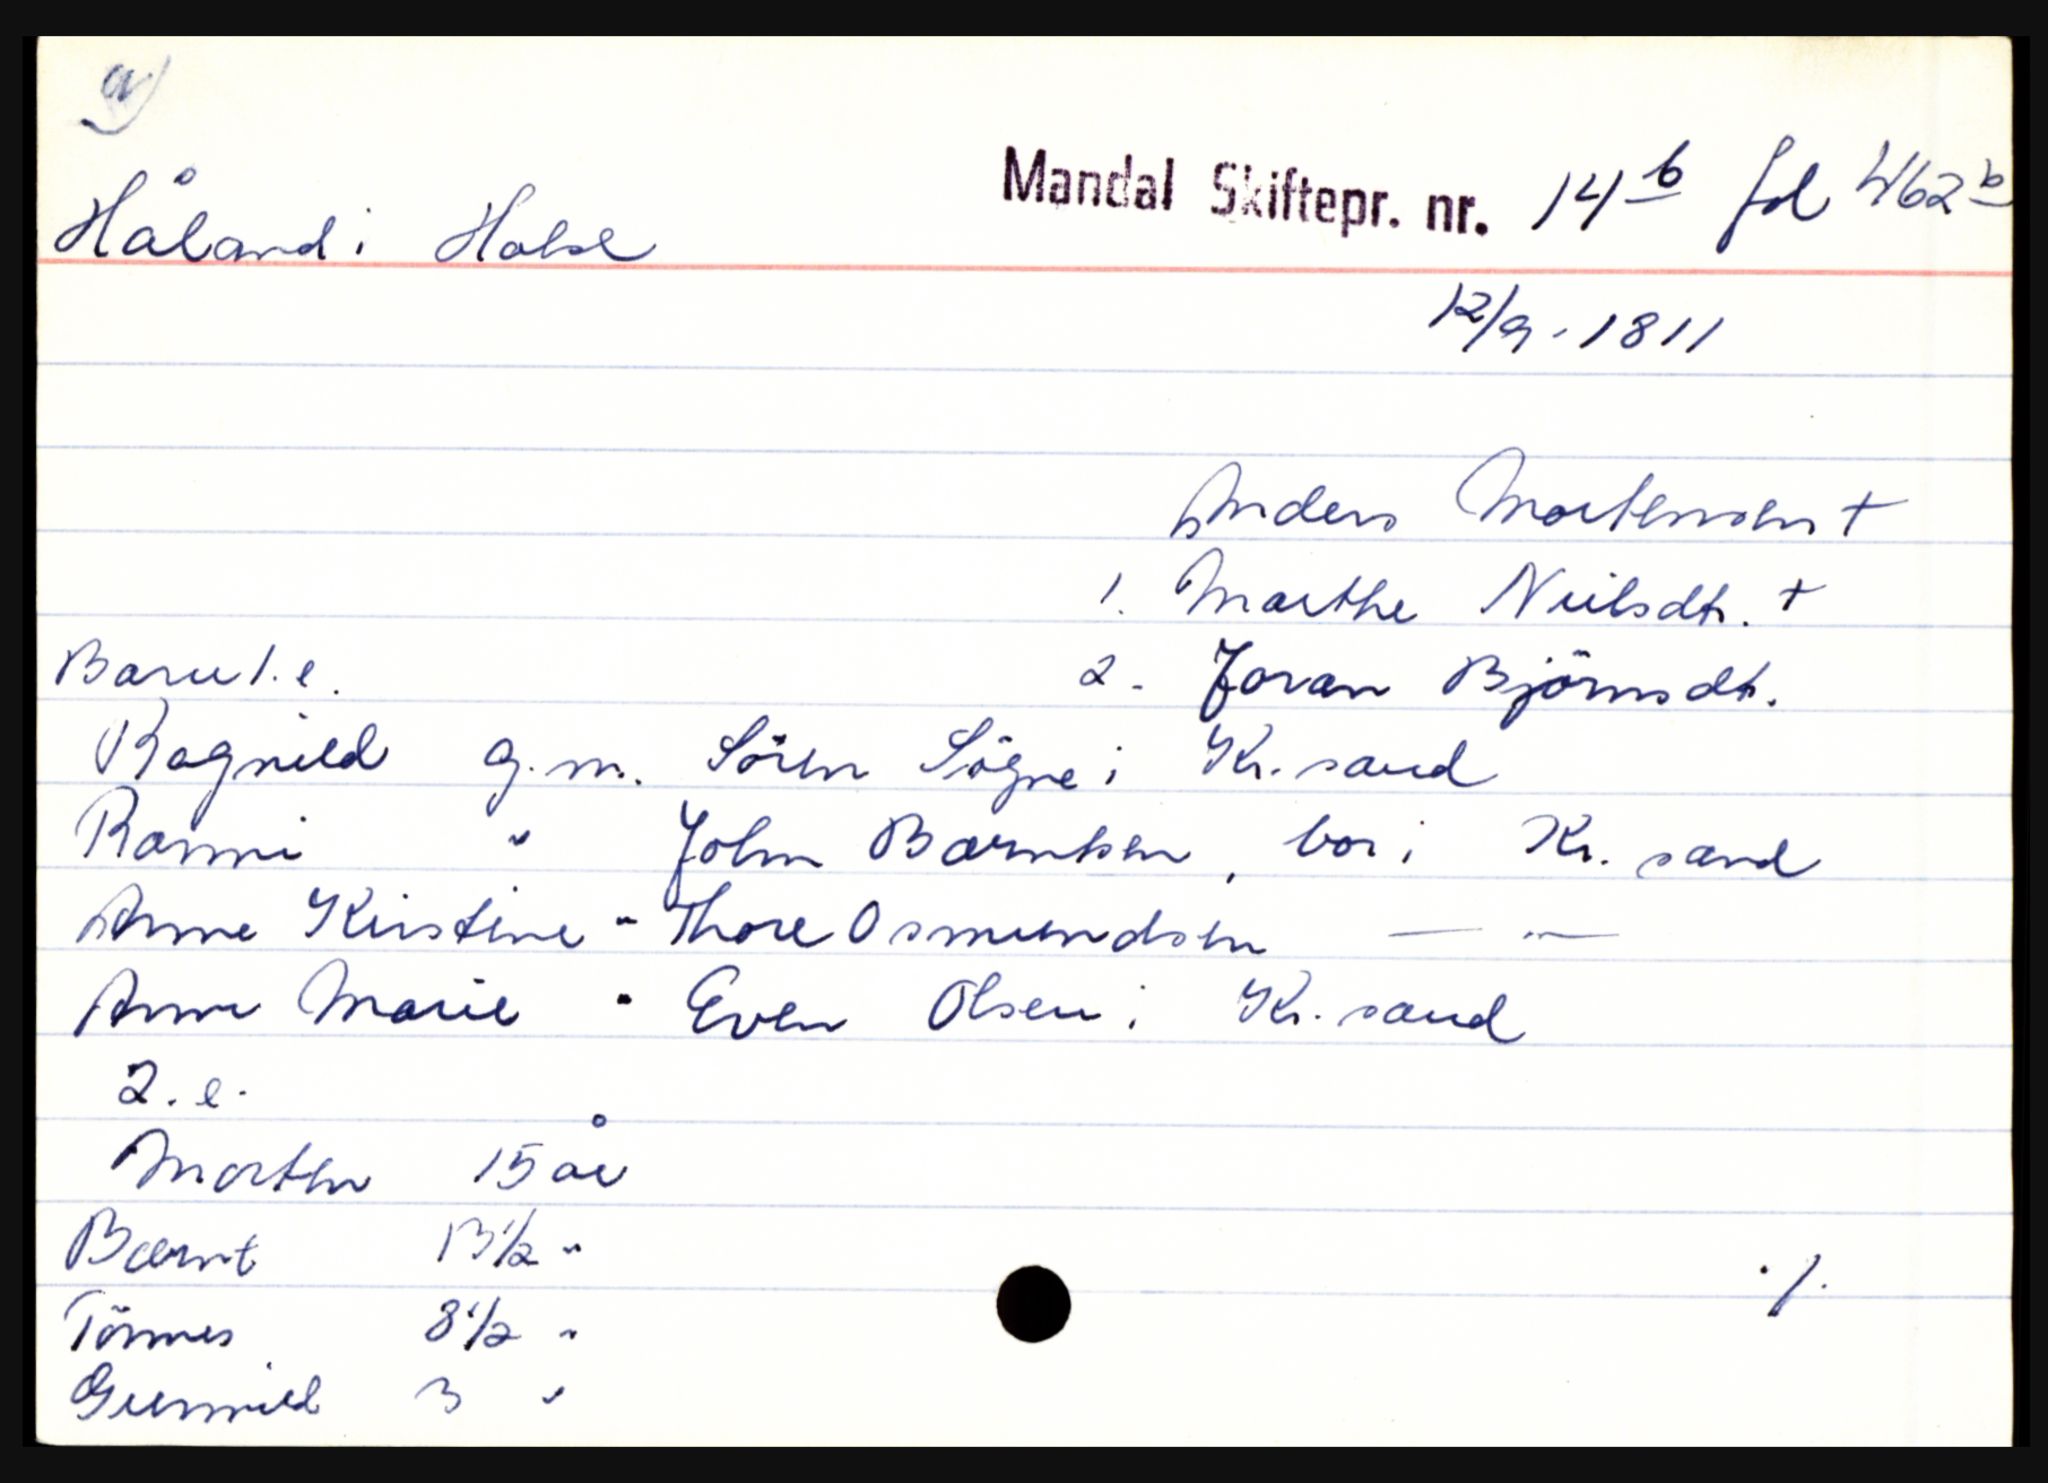 a)
Håland i Halse
Mandal Skiftepr. nr. 14 b fol 462 b
12/9 - 1811
Anders Mortensen +
1. Marthe Nielsdtr. +
Barn 1. e. 2. Joran Björnsdtr.
Ragnild g. m. Sören Sögne i Kr. sand
Ranni " John Berntsen, bor i Kr. sand
Anne Kirstine " Thore Osmundsen — " —
Anne Marie " Even Olsen i Kr. sand
2. e.
Morten 15 år
Bernt 13 1/2 "
Tönnes 8 1/2 "
Gunnild 3 "
./.